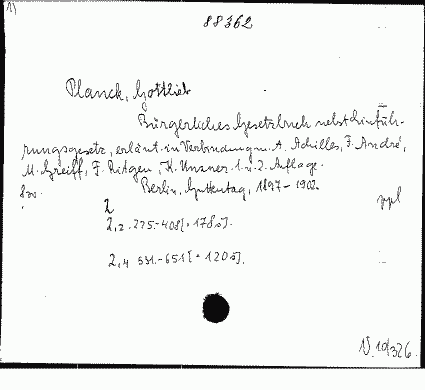 1)
88362
Planck, Gottlieb
Bürgerliches Gesetzbuch nebst Einfüh-
rungsgesetz, erläut. in Verbindung m. A. Achilles, F. André,
M. Greiff, F. Ritgen, K. Unzner. 1. u. 2. Auflage.
8vo. Berlin, Guttentag, 1897-1902.
2
2,2. 225.-408[=178 s].
2,4 531.-651[=120 s].
V. 19/326.